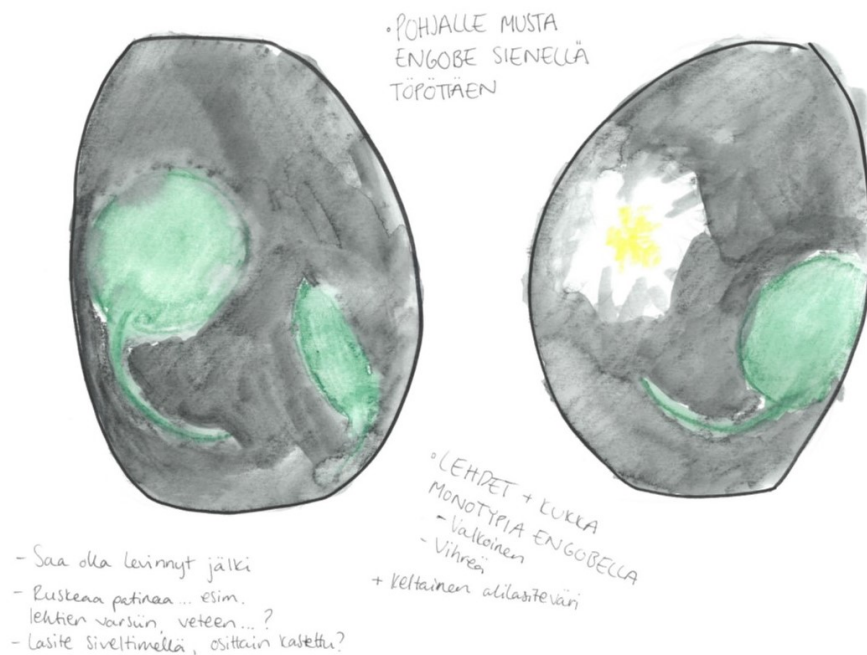 • POHJALLE MUSTA
ENGOBE SIENELLÄ
TÖPÖTTÄEN
• LEHDET + KUKKA
MONOTYPIA ENGOBELLA
- Valkoinen
- Vihreä
+ Keltainen alilasiteväri
- Saa olla levinnyt jälki
- Ruskeaa patinaa... esim.
lehtien varsiin, veteen...?
- Lasite siveltimellä, osittain kastettu?